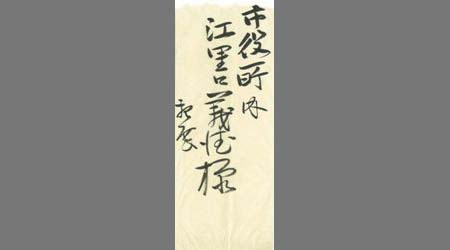 市役所内
江里口義雄様
親展